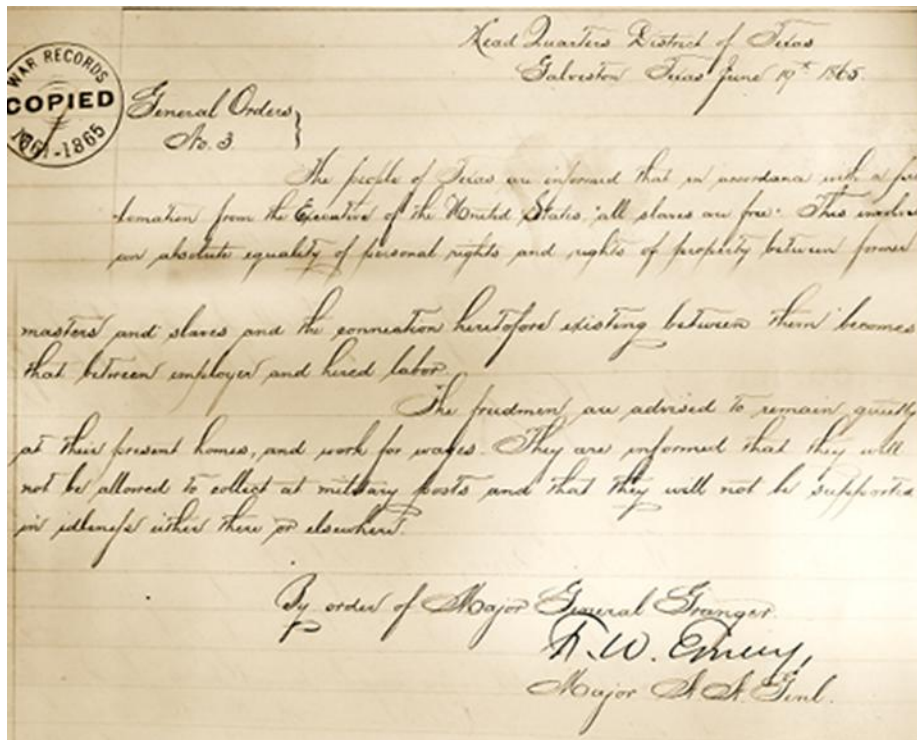 Head Quarters District of Texas
Galveston Texas June 19th 1865.
WAR RECORDS
COPIED
1861-1865
General Orders
No. 3
The people of Texas are informed that in accordance with a pro
clamation from the Executive of the United States, "all slaves are free." This involves
an absolute equality of personal rights and rights of property between former
masters and slaves and the connection heretofore existing between them becomes
that between employer and hired labor.
The freedmen are advised to remain quietly
at their present homes, and work for wages. They are informed that they will
not be allowed to collect at military posts and that they will not be supported
in idleness either there or elsewhere.
By order of Major General Granger
F. W. Emery,
Major A. A. Genl.